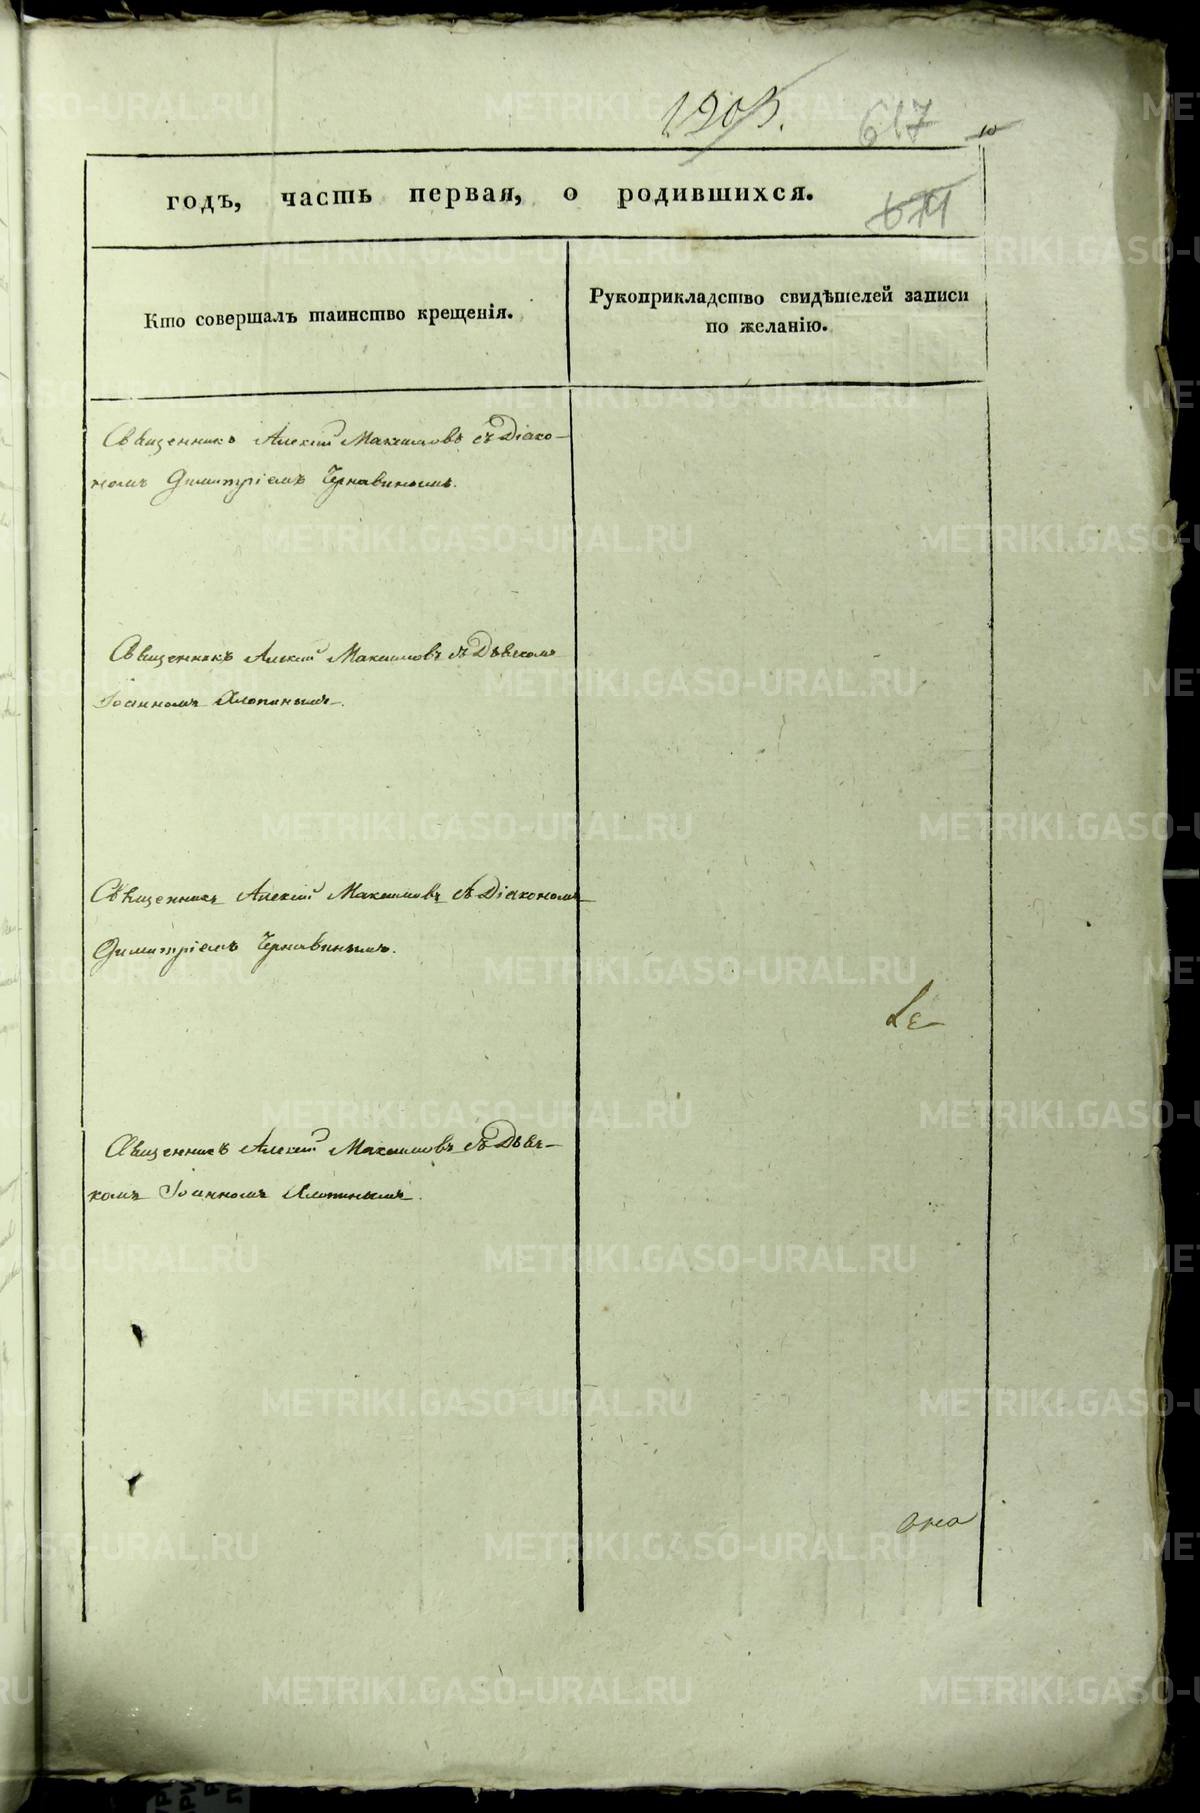 1203.
617
10
614
годъ, часть первая, о родившихся.
Кто совершалъ таинство крещенія.
Рукоприкладство свидѣтелей записи
по желанію.
Священникъ Алексій Максимовъ съ Діако-
номъ Димитріемъ Чернавинымъ.
Священникъ Алексій Максимовъ съ Дьячкомъ
Іоанномъ Хлопинымъ.
Священникъ Алексій Максимовъ съ Діакономъ
Димитріемъ Чернавинымъ.
Священникъ Алексій Максимовъ съ Дьяч-
комъ Іоанномъ Хлопинымъ.
она
METRIKI.GASO-URAL.RU